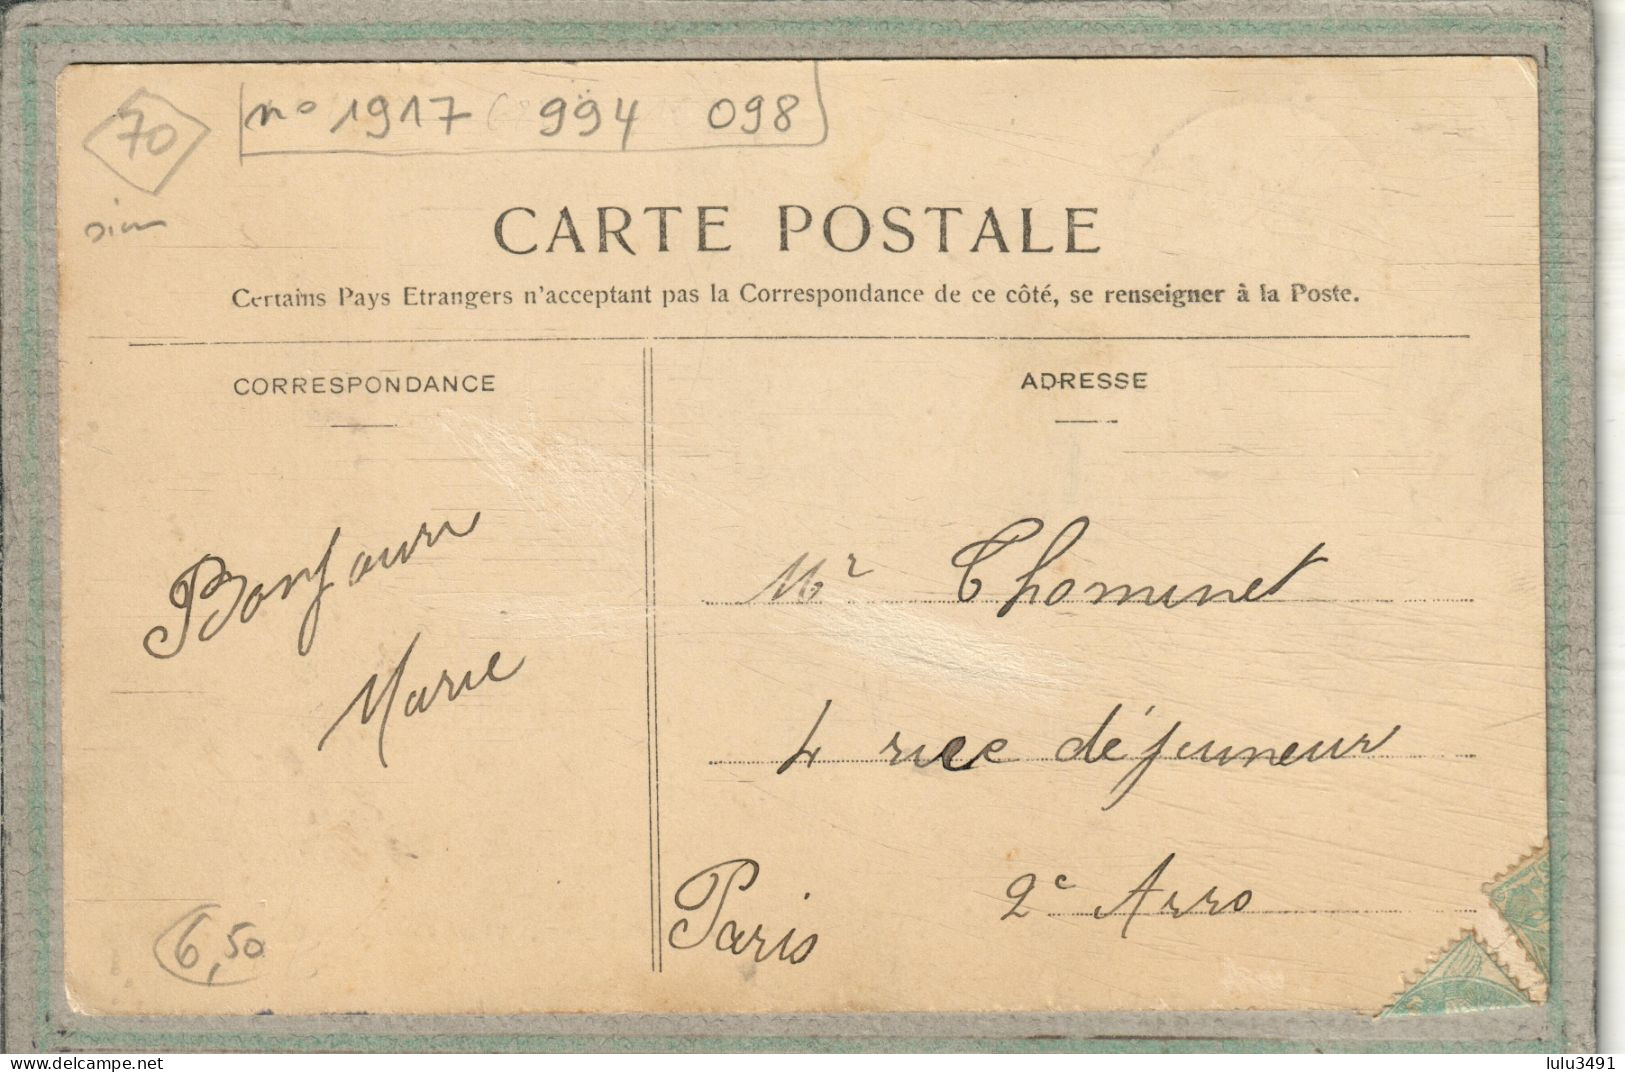 70
n° 1917 994 098
CARTE POSTALE
Certains Pays Etrangers n'acceptant pas la Correspondance de ce côté, se renseigner à la Poste.
CORRESPONDANCE
ADRESSE
Bonjour
Marie
Mr Thominet
4 rue déjeuneur
2e Arro
Paris
6,50
www.delcampe.net
lulu3491